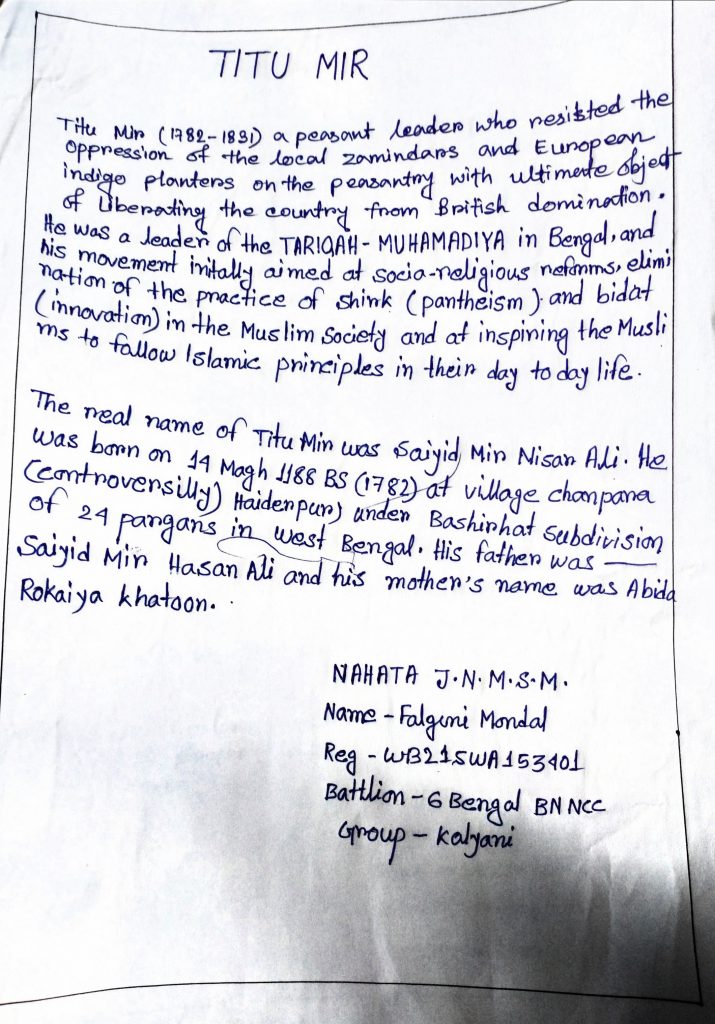 TITU MIR
Titu Mir (1782-1831) a peasant leader who resisted the
oppression of the local zamindars and European
indigo planters on the peasantry with ultimate object
of liberating the country from British domination.
He was a leader of the TARIQAH-MUHAMADIYA in Bengal, and
his movement initally aimed at socia-religious reforms, elimi
nation of the practice of shink (pantheism) and bidat
(innovation) in the Muslim Society and at inspiring the Musli
ms to fallow Islamic principles in their day to day life.
The real name of Titu Mir was Saiyid Mir Nisar Ali. He
was born on 14 Magh 1188 BS (1782) at village chanpara
(controversilly) Haiderpur) under Bashirhat subdivision
of 24 pargans in west Bengal. His father was —
Saiyid Mir Hasan Ali and his mother's name was Abida
Rokaiya khatoon.
NAHATA J.N.M.S.M.
Name - Falguni Mondal
Reg - WB21SWA153401
Battlion - 6 Bengal BN NCC
Group - Kalyani